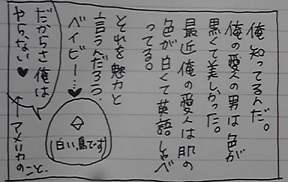 俺知ってるんだ。
俺の愛人の男は色が
黒くて美しかった。
最近俺の愛人は肌の
色が白くて英語しゃべ
ってる。
それを魅力と
言うんだろう、
ベイビー♥
だからさ俺は
やらない♥
(白い鳥です)
←アメリカのこと。